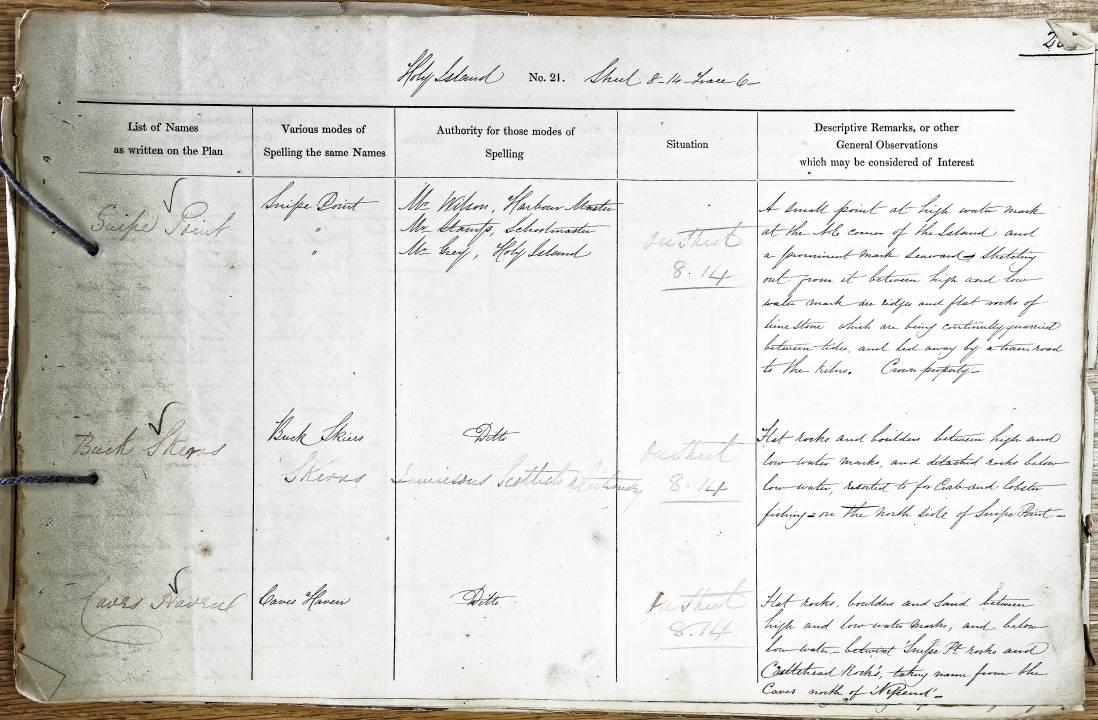 Holy Island No. 21. Sheet 8-14 Trace 6-
List of Names
as written on the Plan
Various modes of
Spelling the same Names
Authority for those modes of
Spelling
Situation
Descriptive Remarks, or other
General Observations
which may be considered of Interest
Snipe Point
Snipe Point
"
"
Mr Wilson, Harbour Master
Mr Stamp, Schoolmaster
Mr Grey, Holy Island
On Sheet
8.14
A small point at high water mark
at the NE corner of the Island and
a prominent mark seaward - Stretching
out from it between high and low
water mark are ridges and flat rocks of
lime stone which are being continually quarried
between tides, and led away by a tram road
to the kilns. Crown property -
Buck Skerrs
Buck Skiers
Skerrs
Ditto
Jamiesons Scottish Dictionary
On Sheet
8.14
Flat rocks and boulders between high and
low water marks, and detached rocks below
low water, resorted to for Crab and lobster
fishing - on the North side of Snipe Point -
Caves Haven
Caves Haven
Ditto
On Sheet
8.14
Flat rocks, boulders and Sand between
high and low water marks, and below
low water - betwixt 'Snipe Pt. rocks and
Castlehead Rocks', taking name from the
Caves north of 'Nessend' -